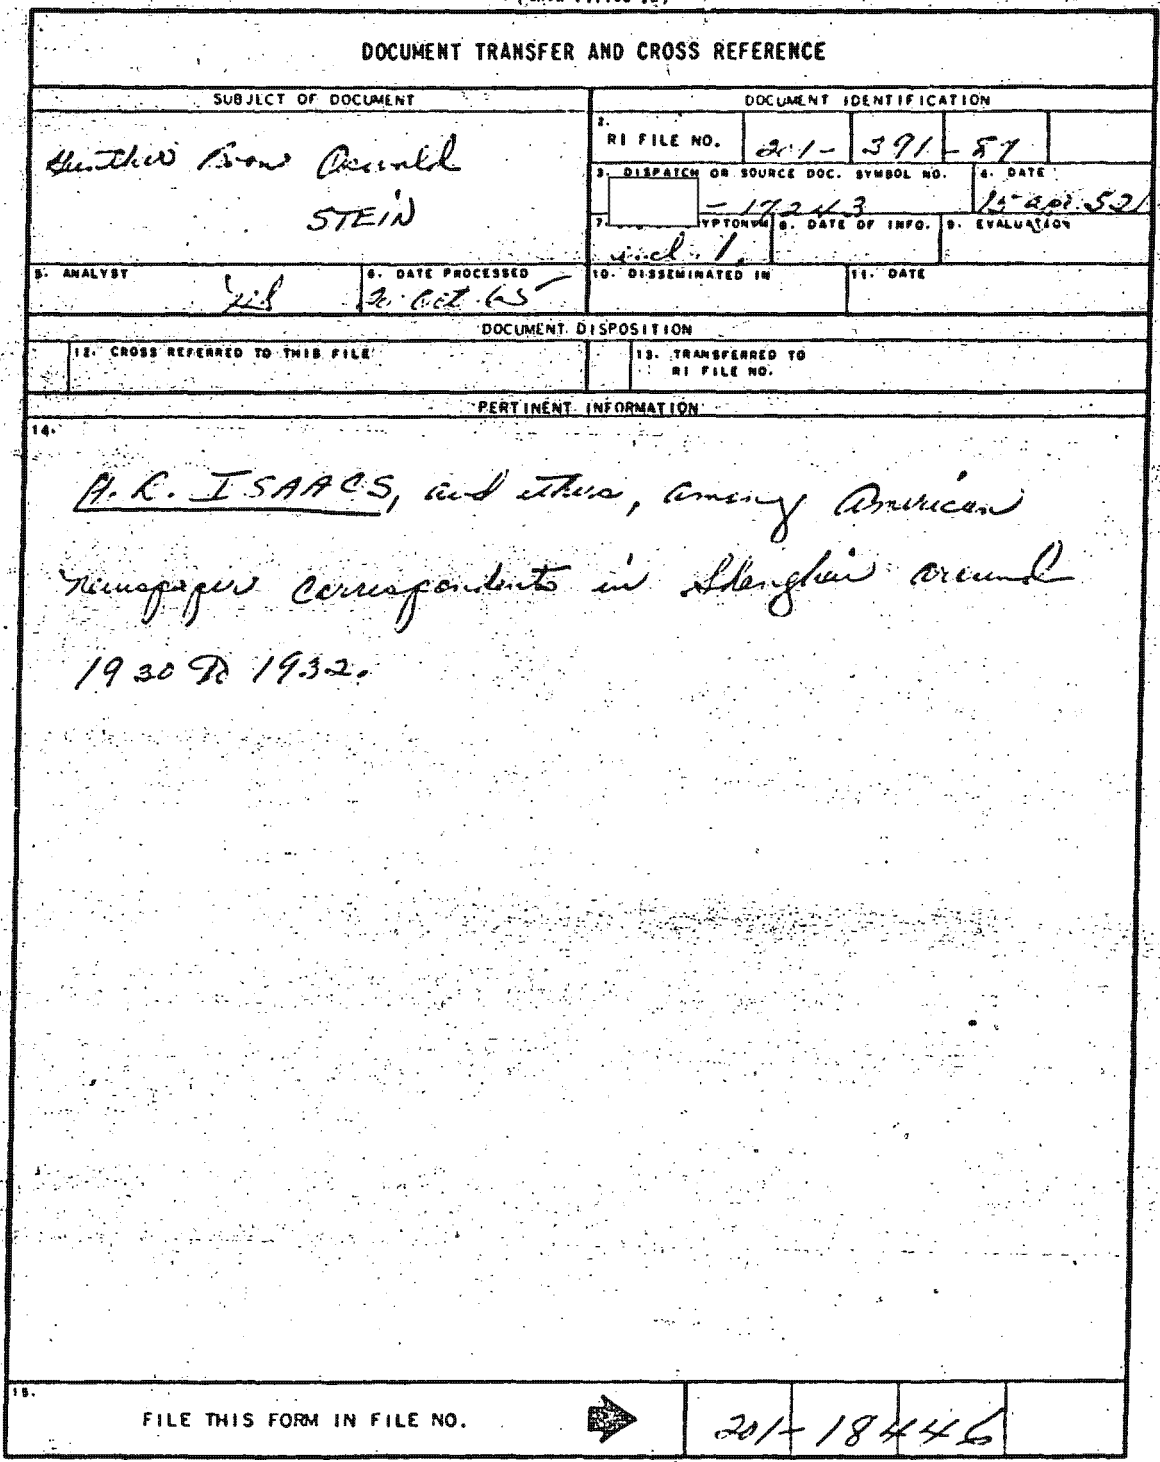 DOCUMENT TRANSFER AND CROSS REFERENCE
SUBJECT OF DOCUMENT
DOCUMENT IDENTIFICATION
Oswald
STEIN
2.
RI FILE NO. 201- 391-57
3. DISPATCH OR SOURCE DOC. SYMBOL NO.
-17243
4. DATE
15 apr. 52
7. YPTONYM
incl. 1.
8. DATE OF INFO.
9. EVALUATION
5. ANALYST
6. DATE PROCESSED
20 Oct 65
10. DISSEMINATED IN
11. DATE
DOCUMENT DISPOSITION
12. CROSS REFERRED TO THIS FILE
13. TRANSFERRED TO
RI FILE NO.
PERTINENT INFORMATION
14.
H. R. ISAACS, and others, among American
newspaper correspondents in Shanghai around
1930 to 1932.
15.
FILE THIS FORM IN FILE NO.
201-18446